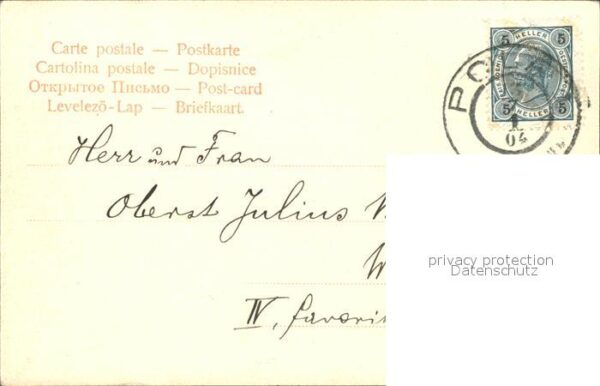 Carte postale — Postkarte
Cartolina postale — Dopisnice
Открытое Письмо — Post-card
Levelező-Lap — Briefkaart.
5 HELLER 5
5 HELLER 5
1
04
Herr und Frau
Oberst Julius
W
IV, favorit
privacy protection
Datenschutz